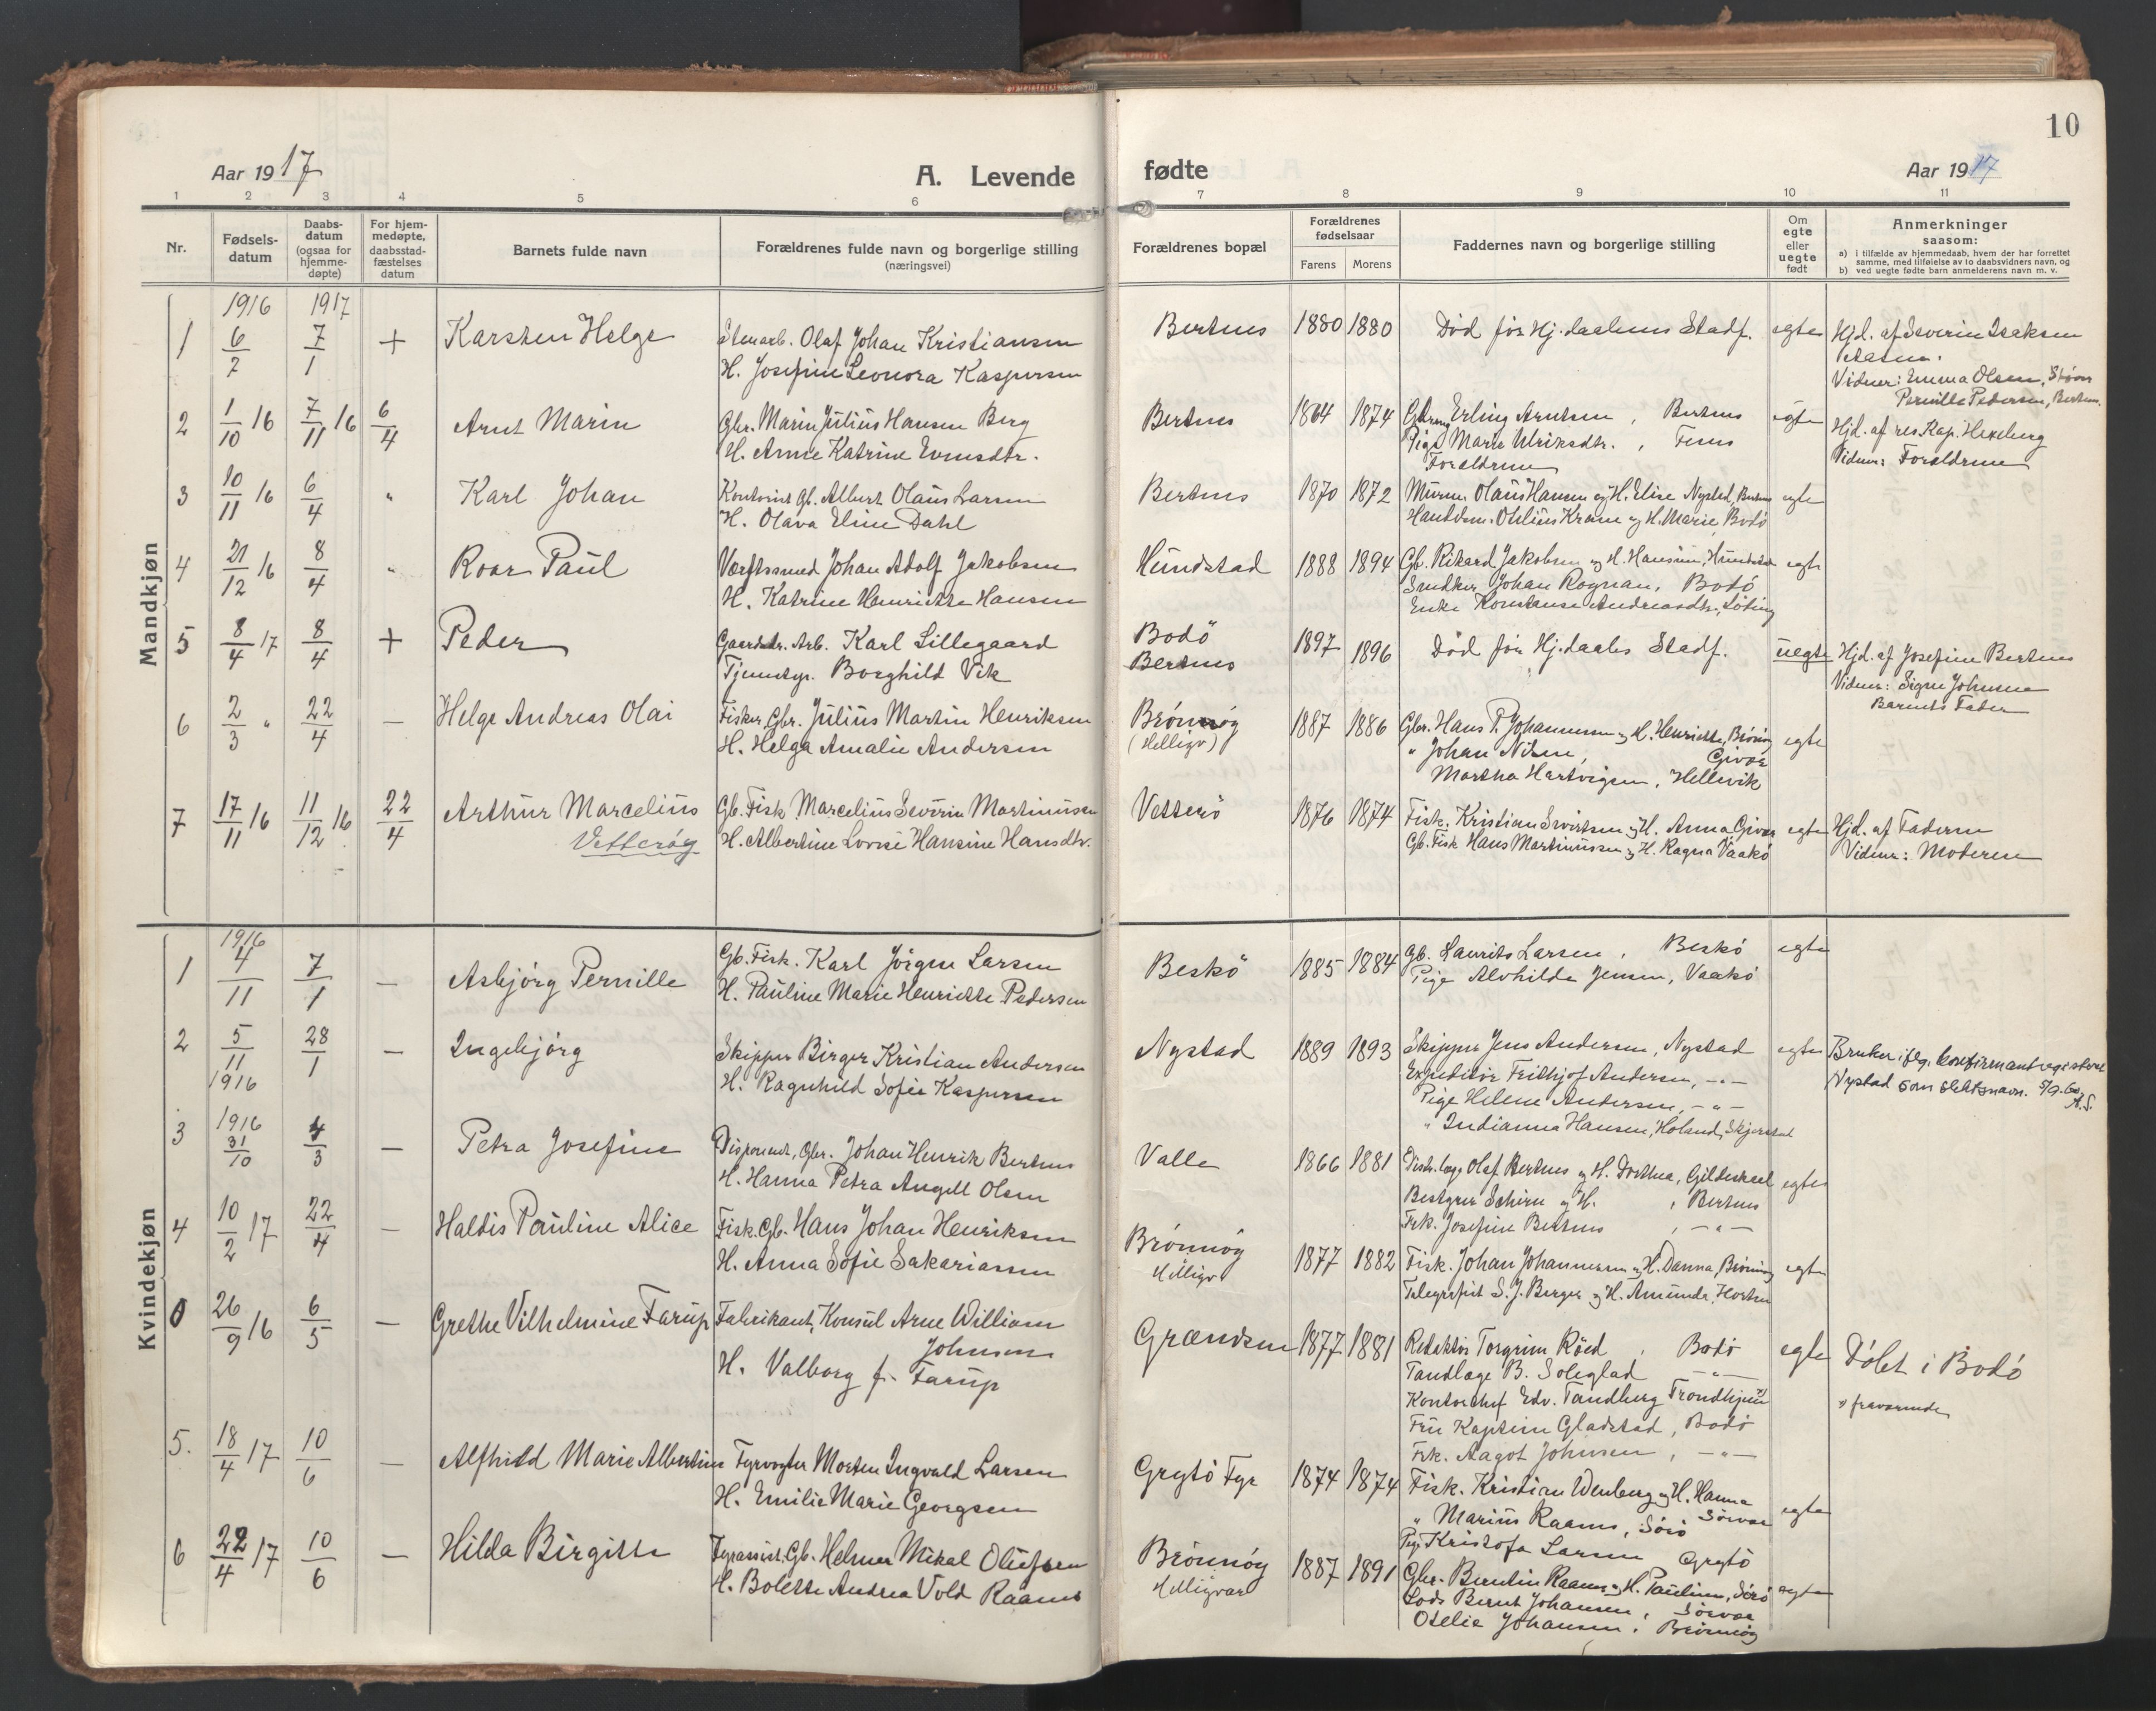 10
Aar 1917
A. Levende
fødte
Aar 1917
1 2 3 4 5 6 7 8 9 10 11
Nr.
Fødsels-
datum
Daabs-
datum
(ogsaa for
hjemme-
døpte)
For hjem-
medøpte,
daabsstad-
fæstelses
datum
Barnets fulde navn
Forældrenes fulde navn og borgerlige stilling
(næringsvei)
Forældrenes bopæl
Forældrenes
fødselsaar
Farens Morens
Faddernes navn og borgerlige stilling
Om
egte
eller
uegte
født
Anmerkninger
saasom:
a) i tilfælde av hjemmedaab, hvem der har forrettet
samme, med tilføielse av to daabsvidners navn, og
b) ved uegte fødte barn anmelderens navn m. v.
Mandkjøn
1916 1917
1 6/7 7/1 + Karsten Helge
Stenarb. Olaf Johan Kristiansen
H. Josefine Leonora Kaspersen
Bertnes 1880 1880 Død før Hj.daabens Stadf. egte
Hjd. af Severin Isaksen
Vidner: Emma Olsen,
Pernille Pedersen, Bertnes.
2 1/10 16 7/11 16 6/4 Arnt Marin
Gbr. Marin Julius Hansen Berg
H. Anne Katrine Evensdtr.
Bertnes 1864 1874 Erling Arntsen, Bertnes egte
Pige Marie Ulriksdtr.,
Forældrene
Hjd. af res. Kap. Hexeberg
Vidner: Forældrene
3 10/11 16 6/4 " Karl Johan
Kontorist Gb. Albert Olaus Larsen
H. Olava Eline Dahl
Bertnes 1870 1872 Murer Olaus Hansen og H. Elise Nystad, Bertnes egte
Othilius Krane og H. Marie, Bodö
4 21/12 16 8/4 " Roar Paul
Værftssmed Johan Adolf Jakobsen
H. Katrine Henriette Hansen
Hundstad 1888 1894 Gb. Rikard Jakobsen og H. Hansine, Hundstad egte
Snedker Johan Rognan, Bodö
Enke Konstanse Andreasdtr., Löding
5 8/4 17 8/4 + Peder
Gaards. Arb. Karl Lillegaard
Tjenestp. Borghild Vik
Bodö
Bertnes
1897 1896 Död för Hj.daabs Stadf. uegte
Hjd. af Josefine Bertnes
Vidner: Signe Johnsen
Barnets Fader
6 2/3 " 22/4 — Helge Andreas Olai
Fisker, Gbr. Julius Martin Henriksen
H. Helga Amalie Andersen
Brönnöy
(Helligv)
1887 1886 Gbr. Hans P. Johannesen og H. Henriette, Brönnöy egte
" Johan Nilsen, Givær
Martha Hartvigsen, Hellevik
7 17/11 16 11/12 16 22/4 Arthur Marcelius
Vetteröy
Gb. Fisk. Marcelius Severin Martinussen
H. Albertine Lovise Hansine Hansdtr.
Vetterö 1876 1874 Fisk. Kristian Sivertsen og H. Anna, Givær egte
Gb. Fisk. Hans Martinussen og H. Ragna Vaakö
Hjd. af Faderen
Vidner: Moderen
Kvindekjøn
1916
1 4/11 7/1 — Asbjörg Pernille
Gb. Fisk. Karl Jörgen Larsen
H. Pauline Marie Henriette Pedersen
Beskö 1885 1884 Gb. Laurits Larsen, Beskö egte
Pige Alvhilda Jensen, Vaakö
2 5/11 1916 28/1 — Ingebjörg
Skipper Birger Kristian Andersen
H. Ragnhild Sofie Kaspersen
Nystad 1889 1893 Skipper Jens Andersen, Nystad egte
Expeditör Frithjof Andersen, -"-
Pige Helene Andersen, -"-
" Indianna Hansen, Holand, Skjerstad
Bruker iflg. konfirmantregisteret
Nystad som slektsnavn. 5/9.60.
A.S.
1916
3 31/10 4/3 — Petra Josefine
Disponent, Gbr. Johan Henrik Bertnes
H. Hanna Petra Angell Olsen
Valle 1866 1881 Distr.læge Olaf Bertnes og H. Dorthea, Gildeskaal egte
Bestyrer Schira og H., Bertnes
Frk. Josefine Bertnes, -"-
4 10/2 17 22/4 — Haldis Pauline Alice
Fisk. Gb. Hans Johan Henriksen
H. Anna Sofie Sakariassen
Brönnöy
Helligv
1877 1882 Fisk. Johan Johannesen og H. Danna, Brönnöy egte
Telegrafist S. J. Berger og H. Amunda, Horten
0 26/9 16 6/5 — Grethe Vilhelmine Farup
Fabrikant, Konsul Arne William
Johnsen
H. Valborg f. Farup
Grændsen 1877 1881 Redaktör Torgrim Röed, Bodö egte
Tandlæge B. Soleglad -"-
Kontorchef Edv. Tandberg Trondhjem x)
Fru Kaptein Gladstad, Bodö
Frk. Aagot Johnsen, -"-
Döbt i Bodö
x) fraværende
5. 18/4 17 10/6 — Alfhild Marie Albertine
Fyrvogter Morten Ingvald Larsen
H. Emilie Marie Georgsen
Grytö Fyr 1874 1874 Fisk. Kristian Wenberg og H. Hanna egte
Sörvær
" Marius Raanes, Sörö
Pig. Kristofa Larsen, Grytö
6 22/4 17 10/6 — Hilda Birgitte
Fyrassist. Gb. Helmer Mikal Olufsen
H. Bolette Andrea Vold Raanes
Brönnöy
Helligvær
1887 1891 Gbr. Berntin Raanes og H. Pauline, Sörö egte
Lods Bernt Johansen, Sörvær
Otelie Johansen, Brönnöy